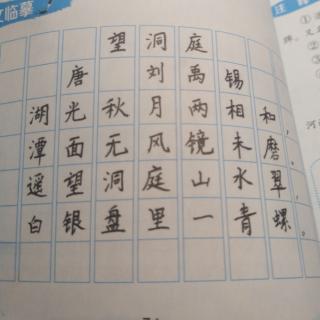 文临摹
望洞庭
唐 刘禹锡
湖光秋月两相和,
潭面无风镜未磨。
遥望洞庭山水翠,
白银盘里一青螺。